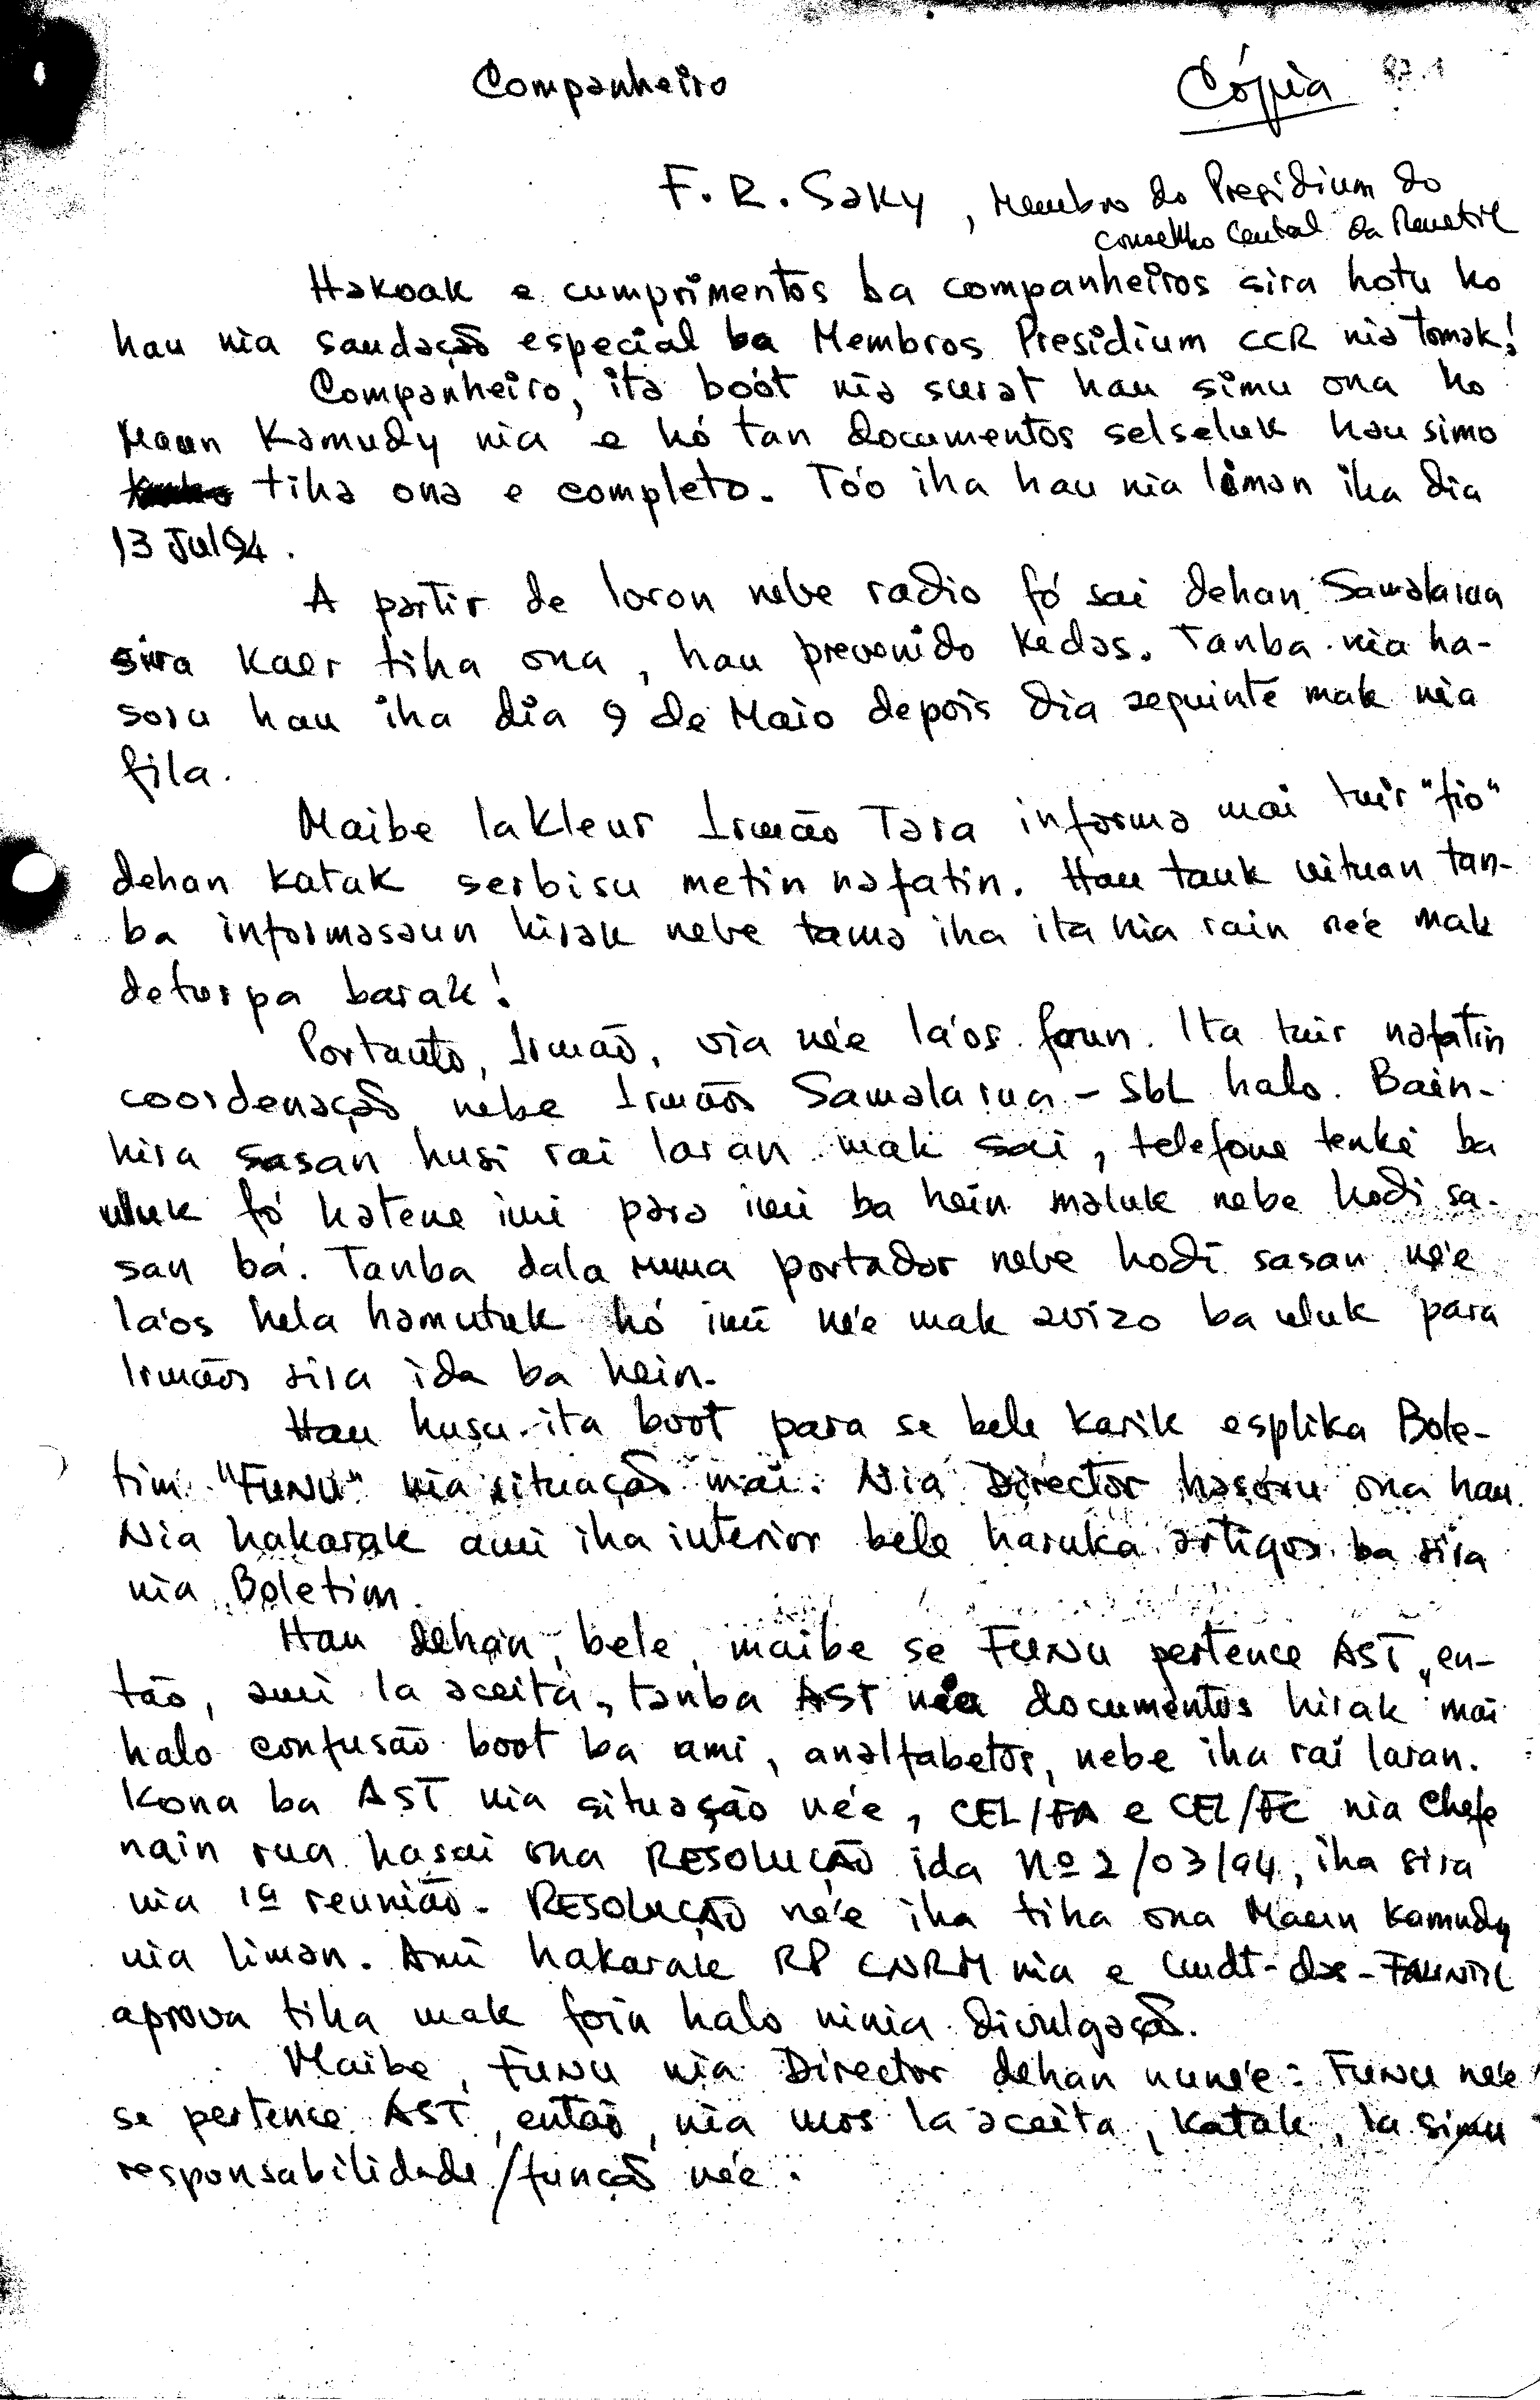 Companheiro
Cópia 87.1
F. R. Saky, Membro do Presidium do
Conselho Central da Renetil
Hakoak e cumprimentos ba companheiros sira hotu ho
hau nia saudação especial ba Membros Presidium CCR nia tomak!
Companheiro, ita boót nia surat hau simu ona ho
Maun Kamudy nia e hó tan documentos selseluk hau simo
tiha ona e completo. Tóo iha hau nia liman iha dia
13 Jul 94.
A partir de loron nebe radio fó sai dehan Samalarua
sira kaer tiha ona, hau prevenido kedas. Tanba nia ha-
soru hau iha dia 9 de Maio depois dia seguinte mak nia
fila.
Maibe lakleur Irmão Tara informa mai tuir "fio"
dehan katak serbisu metin nafatin. Hau tauk uituan tan-
ba informasaun hirak nebe tama iha ita nia rain neé mak
deturpa barak!
Portanto, Irmão, via neé láos foun. Ita tuir nafatin
coordenação nebe Irmãos Samalarua - SbL halo. Bain-
hira sasan husi rai laran mak sai, telefone tenke ba
uluk fó hatene imi para imi ba hein maluk nebe hodi sa-
san bá. Tanba dala ruma portador nebe hodi sasan neé
láos hela hamutuk hó imi neé mak avizo ba uluk para
Irmãos sira ida ba hein.
Hau husu ita boot para se bele karik esplika Bole-
tim "FUNU" nia situação mai. Nia Director hasoru ona hau.
Nia hakarak ami iha interior bele haruka artigos ba sira
nia Boletim.
Hau dehan, bele, maibe se FUNU pertence AST, en-
tão, ami la aceita, tanba AST nia documentos hirak mai
halo confusão boot ba ami, analfabetos, nebe iha rai laran.
Kona ba AST nia situação neé, CEL/FA e CEL/FC nia Chefe
nain rua hasai ona RESOLUÇÃO ida Nº 2/03/94, iha sira
nia 1ª reunião. RESOLUÇÃO neé iha tiha ona Maun Kamudy
nia liman. Ami hakarak RP CNRM nia e Cmdt-das-FALINTIL
aprova tiha mak foin halo ninia divulgação.
Maibe, FUNU nia Director dehan nuneé: FUNU neé
se pertence AST, então, nia mos la aceita, katak, la simu
responsabilidade/função neé.